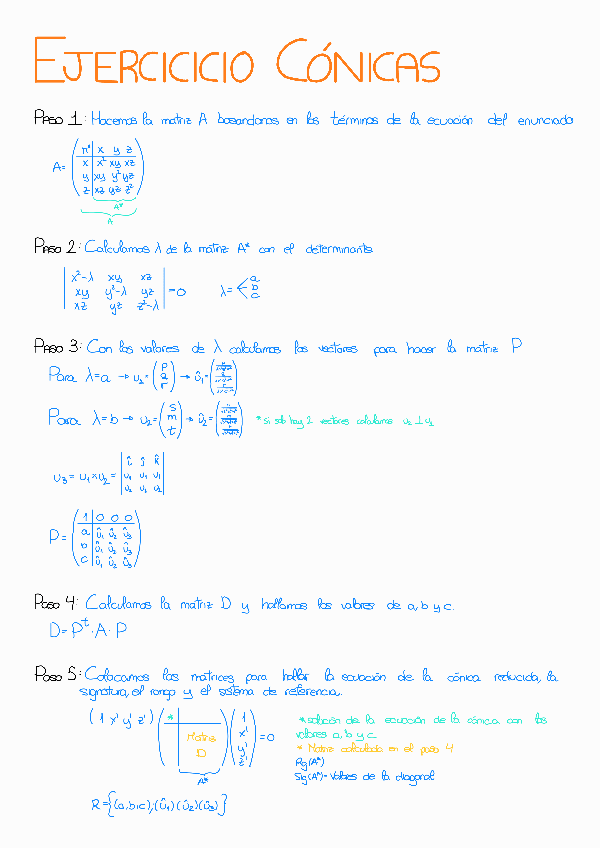 EJERCICICIO CÓNICAS
PASO 1: Hacemos la matriz A basandonos en los términos de la ecuación del enunciado
A = ( nº x y z
x x² xy xz
y xy y² yz
z xz yz z² )
A*
A
PASO 2: Calculamos λ de la matriz A* con el determinante
| x²-λ xy xz
xy y²-λ yz
xz yz z²-λ | = 0 λ = < a b c
PASO 3: Con los valores de λ calculamos los vectores para hacer la matriz P
Para λ=a → u₁=
→ û₁=
Para λ=b → u₂= ( s m t ) → û₂= * si solo hay 2 vectores calculamos u₂ ⊥ u₁
u₃ = u₁ × u₂ =
P = ( 1 0 0 0
a û₁ û₂ û₃
b û₁ û₂ û₃
c û₁ û₂ û₃ )
Paso 4: Calculamos la matriz D y hallamos los valores de a, b y c.
D = Pᵗ · A · P
Paso 5: Colocamos las matrices para hallar la ecuación de la cónica reducida, la
signatura, el rango y el sistema de referencia.
( 1 x' y' z' ) ( * Matriz D ) ( 1 x' y' z' ) = 0
A*
* solución de la ecuación de la cónica con los
valores a, b y c
* Matriz calculada en el paso 4
Rg(A*)
Sig(A*) = Valores de la diagonal
R = {(a,b,c);(û₁)(û₂)(û₃)}